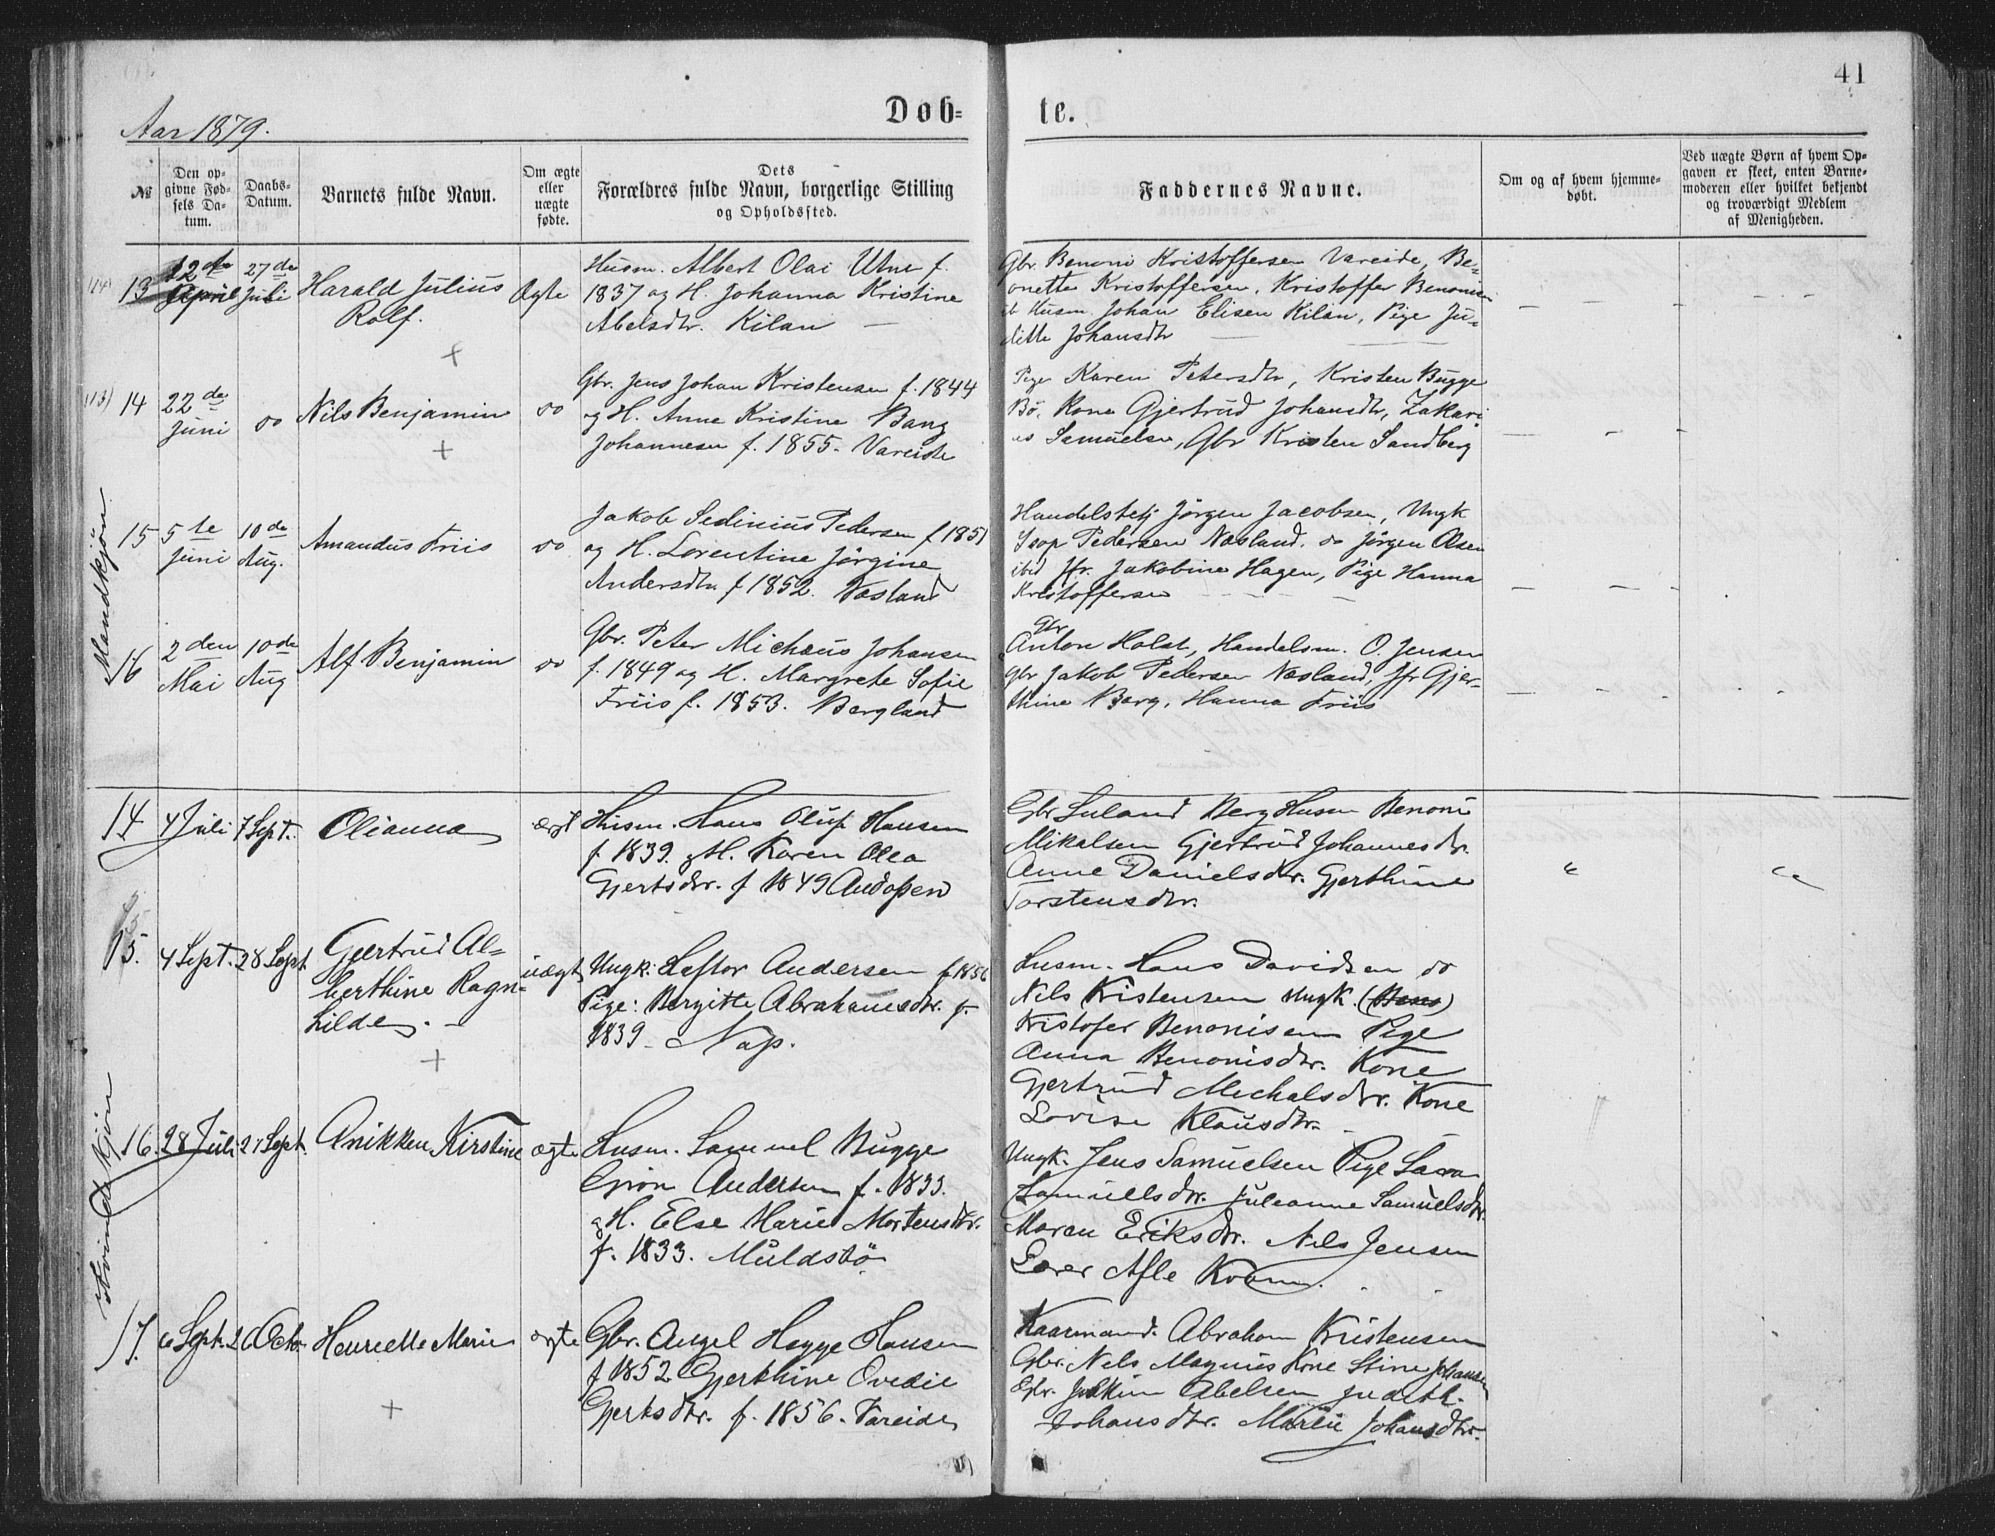 41
Aar 1879.
Døb=
te.
№
Den op-
givne Fød-
sels Da-
tum.
Daabs-
Datum.
Barnets fulde Navn.
Om ægte
eller
uægte
fødte.
Dets
Forældres fulde Navn, borgerlige Stilling
og Opholdssted.
Faddernes Navne.
Om og af hvem hjemme-
døbt.
Ved uægte Børn af hvem Op-
gaven er skeet, enten Barne-
moderen eller hvilket bekjendt
og troværdigt Medlem
af Menigheden.
Mandkjøn
(14) 13
12te
April
27de
Juli
Harald Julius
Rolf.
Ægte
Husm. Albert Olai Utne f.
1837 og H. Johanna Kristine
Abelsdtr. Kilan
Gbr. Benoni Kristoffersen Vareide, Be-
onette Kristoffersen, Kristoffer Benonisen
ib Husm. Johan Elisen Kilan, Pige Ju-
ditte Johansdtr
(13) 14
22de
Juni
do
Nils Benjamin
do
Gbr. Jens Johan Kristensen f. 1844
og H. Anne Kristine Bang
Johannesen f. 1855. Vareide
Pige Karen Petersdtr, Kristen Bugge
Bö, Kone Gjertrud Johansdtr, Zakari
as Samuelsen, Gbr Kristen Sandberg
15
5te
Juni
10de
Aug.
Amandus Friis
do
Jakob Sedinius Pedersen f 1851
og H. Lorentine Jörgine
Andersdtr f 1852. Næsland
Handelsbetj Jörgen Jacobsen, Ungk
Pedersen Næsland. do Jörgen Olsen
ibid Jfr. Jakobine Hagen, Pige Hanna
Kristoffersen
16
2den
Mai
10de
Aug
Alf Benjamin
do
Gbr. Peter Michæus Johansen
f. 1849 og H. Margrete Sofie
Friis f. 1853. Bergland
Gbr
Anton Holst, Handelsm. O. Jensen
gbr Jakob Pedersen Næsland, Jfr Gjer-
thine Berg, Hanna Friis
Kvindekjøn
14
4 Juli
7 Sept.
Olianna
ægt
Husm. Hans Oluf Hansen
f 1839. og H. Karen Olea
Gjertsdtr. f 1849 Andopen
Gbr Suland Berg Husm Benoni
Mikalsen Gjertrud Johannesdtr.
Anne Danielsdtr. Gjerthine
Torstensdtr.
15.
4 Sept.
28 Sept.
Gjertrud Al-
berthine Ragn-
hilde.
uægt
Ungk: Haftor Andersen f 1856
Pige: Bergitte Abrahamsdtr. f.
1839 Nap.
Husm. Hans Davidsen do
Nils Kristensen Ungk. (Hans)
Kristofer Benonisen Pige
Anna Benonisdtr. Kone
Gjertrud Michalsdtr. Kone
Lovise Klausdtr.
16.
28 Juli
21 Sept.
Anikken Kirstine
ægte
Husm. Samuel Bugge
Grön Andersen f. 1833.
og H. Else Marie Mortensdtr.
f. 1833. Muldstö
Ungk. Jens Samuelsen Pige Sara
Samuelsdtr. Juleanne Samuelsdtr.
Maren Eriksdtr. Nils Jensen
Lærer Afle
17.
6 Sept.
26 Octo.
Henriette Marie
ægte
Gbr. Angel Hagge Hansen
f 1852 Gjerthine Ovedie
Gjertsdtr. f. 1856. Vareide
Kaarmand. Abraham Kristensen
Gbr. Nils Magnus Kone Stine Johansen
Gbr. Joakim Abelsen Judith
Johansdtr. Marie Johansdtr.